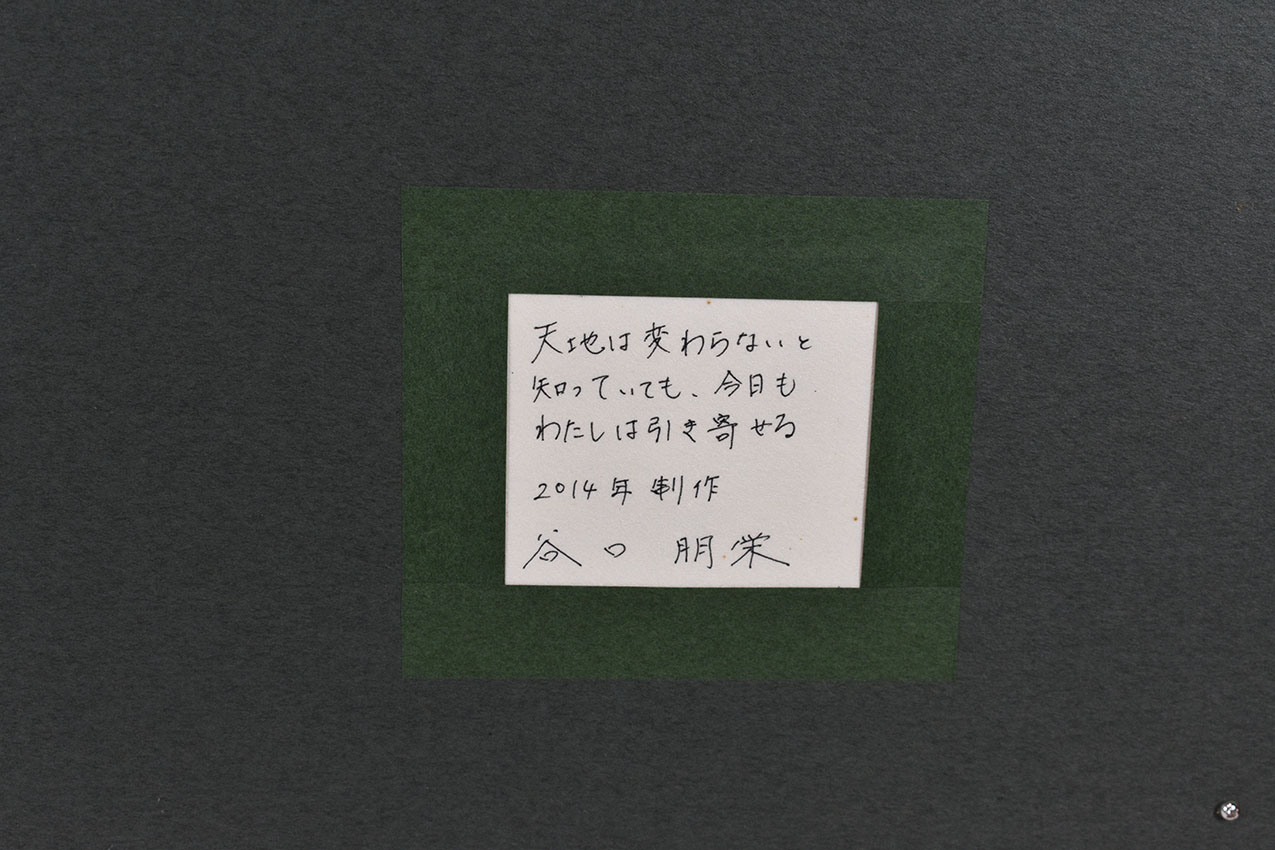 天地は変わらないと
知っていても、今日も
わたしは引き寄せる
2014年 制作
谷口 朋栄